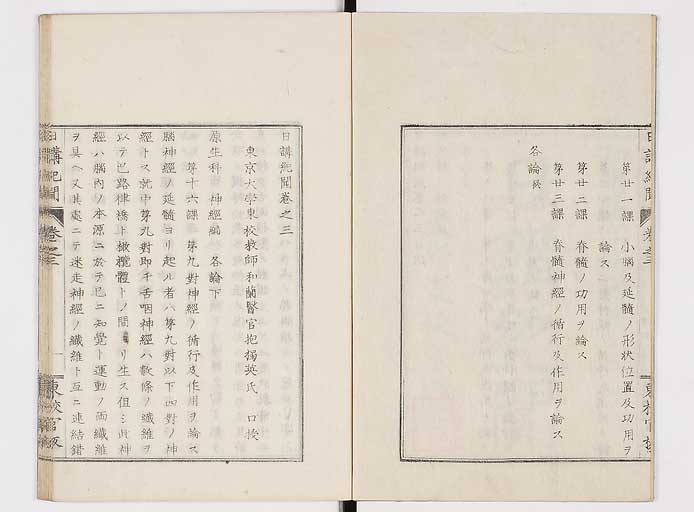 第廿一課　小腦及延髓ノ形狀位置及功用ヲ
論ス
第廿二課　脊髓ノ功用ヲ論ス
第廿三課　脊髓神經ノ循行及作用ヲ論ス
各論終
日講紀聞卷之三
東京大學東校教師和蘭醫官抱獨英氏　口授
原生科　神經編　各論下
第十六課　第九對神經ノ循行及作用ヲ論ス
腦神經ノ延髓ヨリ起ル者ハ第九對以下四對ノ神
經トス就中第九對即チ舌咽神經ハ數條ノ纖維ヲ
以テ巴路律橋ト橄欖體トノ間ヨリ生ス但ミ此神
經ハ腦內ノ本源ニ於テ已ニ知覺ト運動ノ両纖維
ヲ具ヘ又其處ニテ迷走神經ノ纖維ト互ニ連結錯
日講紀聞　卷之三　東校官板